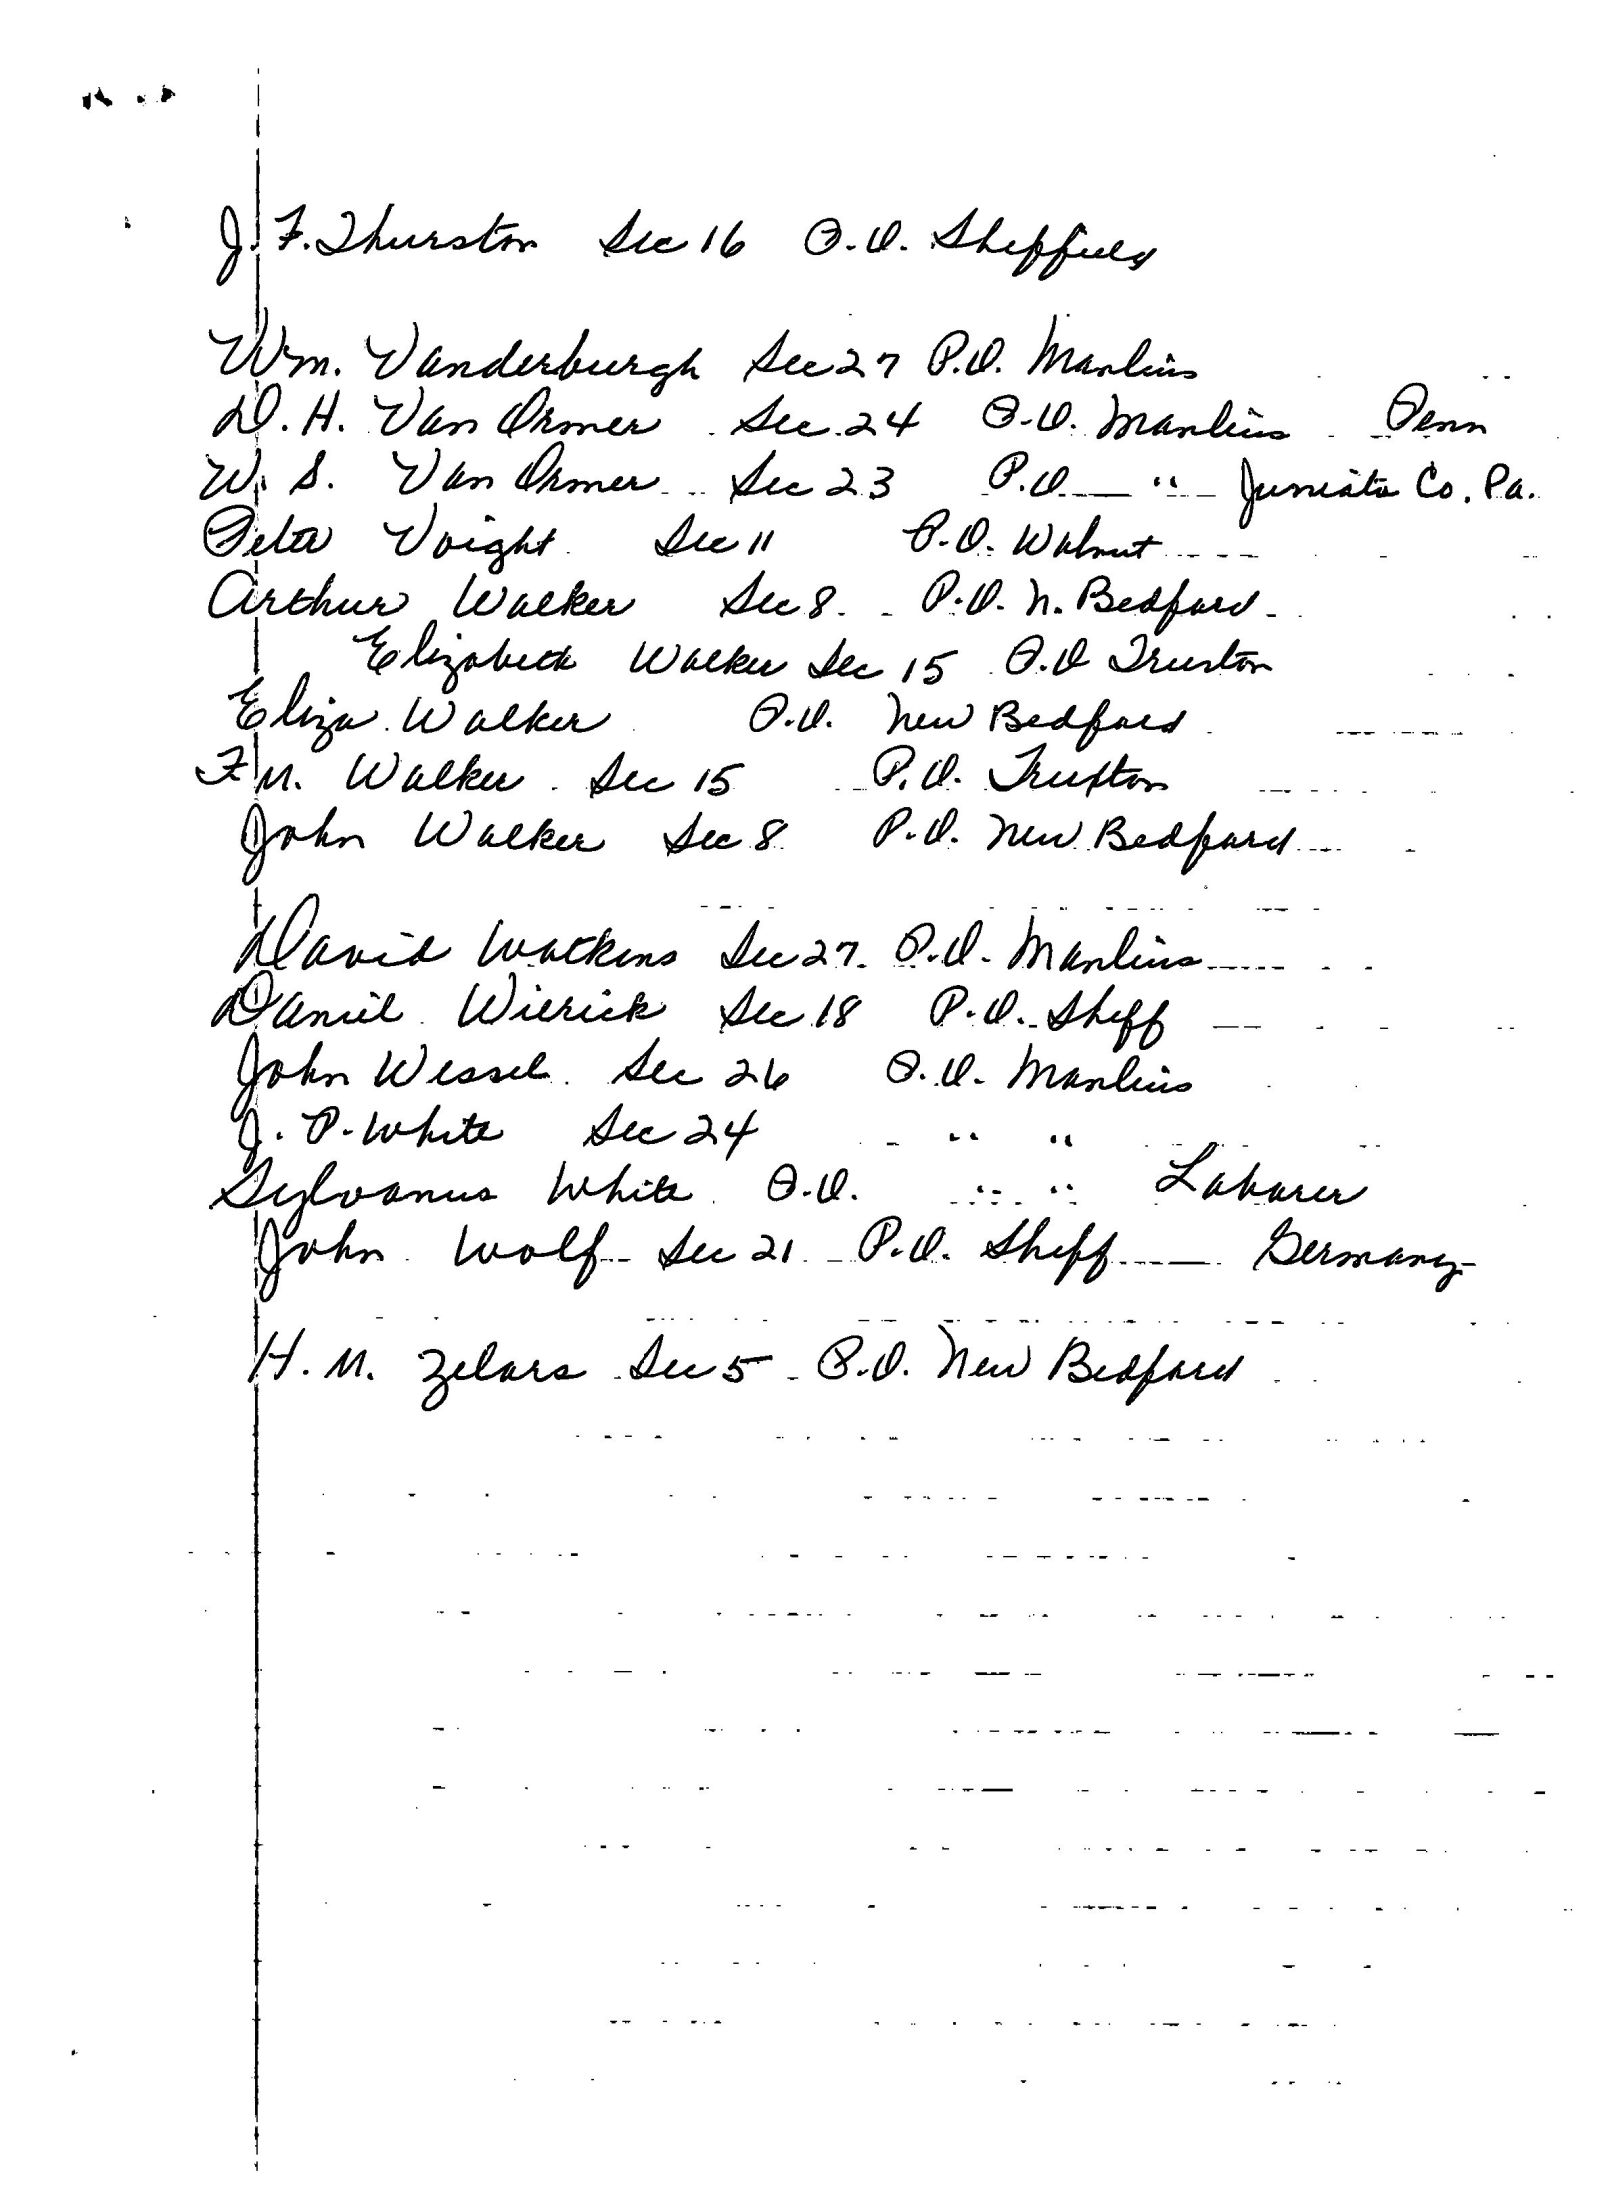 J. F. Thurston Sec 16 P.O. Sheffield
Wm. Vanderburgh Sec 27 P.O. Manlius
D. H. Van Ormer Sec 24 P.O. Manlius Penn
W. S. Van Ormer Sec 23 P.O. — " — Juniata Co. Pa.
Peter Voight Sec 11 P.O. Walnut
Arthur Walker Sec 8 P.O. N. Bedford
Elizabeth Walker Sec 15 P.O Truxton
Eliza Walker P.O. New Bedford
F M. Walker Sec 15 P.O. Truxton
John Walker Sec 8 P.O. New Bedford
David Watkins Sec 27 P.O. Manlius
Daniel Wierick Sec 18 P.O. Sheff
John Wessel Sec 26 P.O. Manlius
J. P. White Sec 24 " "
Sylvanus White P.O. " " Laborer
John Wolf Sec 21 P.O. Sheff — Germany
H. M. Zelars Sec 5 P.O. New Bedford